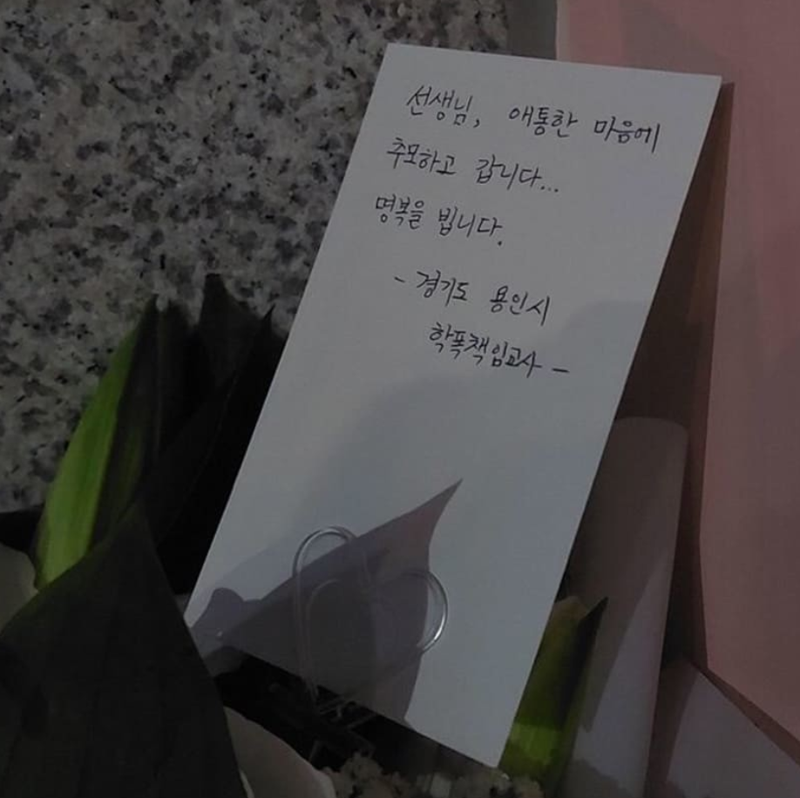 선생님, 애통한 마음에
추모하고 갑니다...
명복을 빕니다.
- 경기도 용인시
학폭책임교사 -